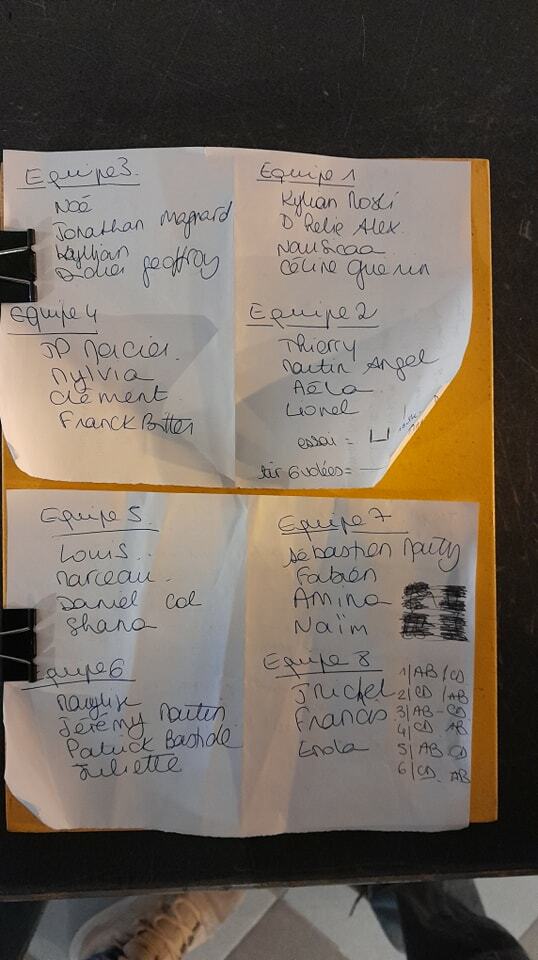 Equipe 3.
Noé
Jonathan Magnard
Kylljan
Didier Geoffroy
Equipe 1
Kylian
D Relie Alex.
Nausicaa
Céline Guerin
Equipe 4
JP Mercier.
Mylvia
Clément
Franck
Equipe 2
Thierry
Martin Angel
Aéla
Lionel
essai =
tir 6 volées =
Equipe 5.
Louis..
Marceau.
Daniel Col
Shana
Equipe 7
Sébastien Marty
Fabien
Amina
Naïm
Equipe 6
Jérémy Martin
Patrick Bastide
Juliette
Equipe 8
JMichel
Francis
Enola
1| AB / CD
2| CD / AB
3| AB - CD
4| CD AB
5| AB CD
6| CD AB